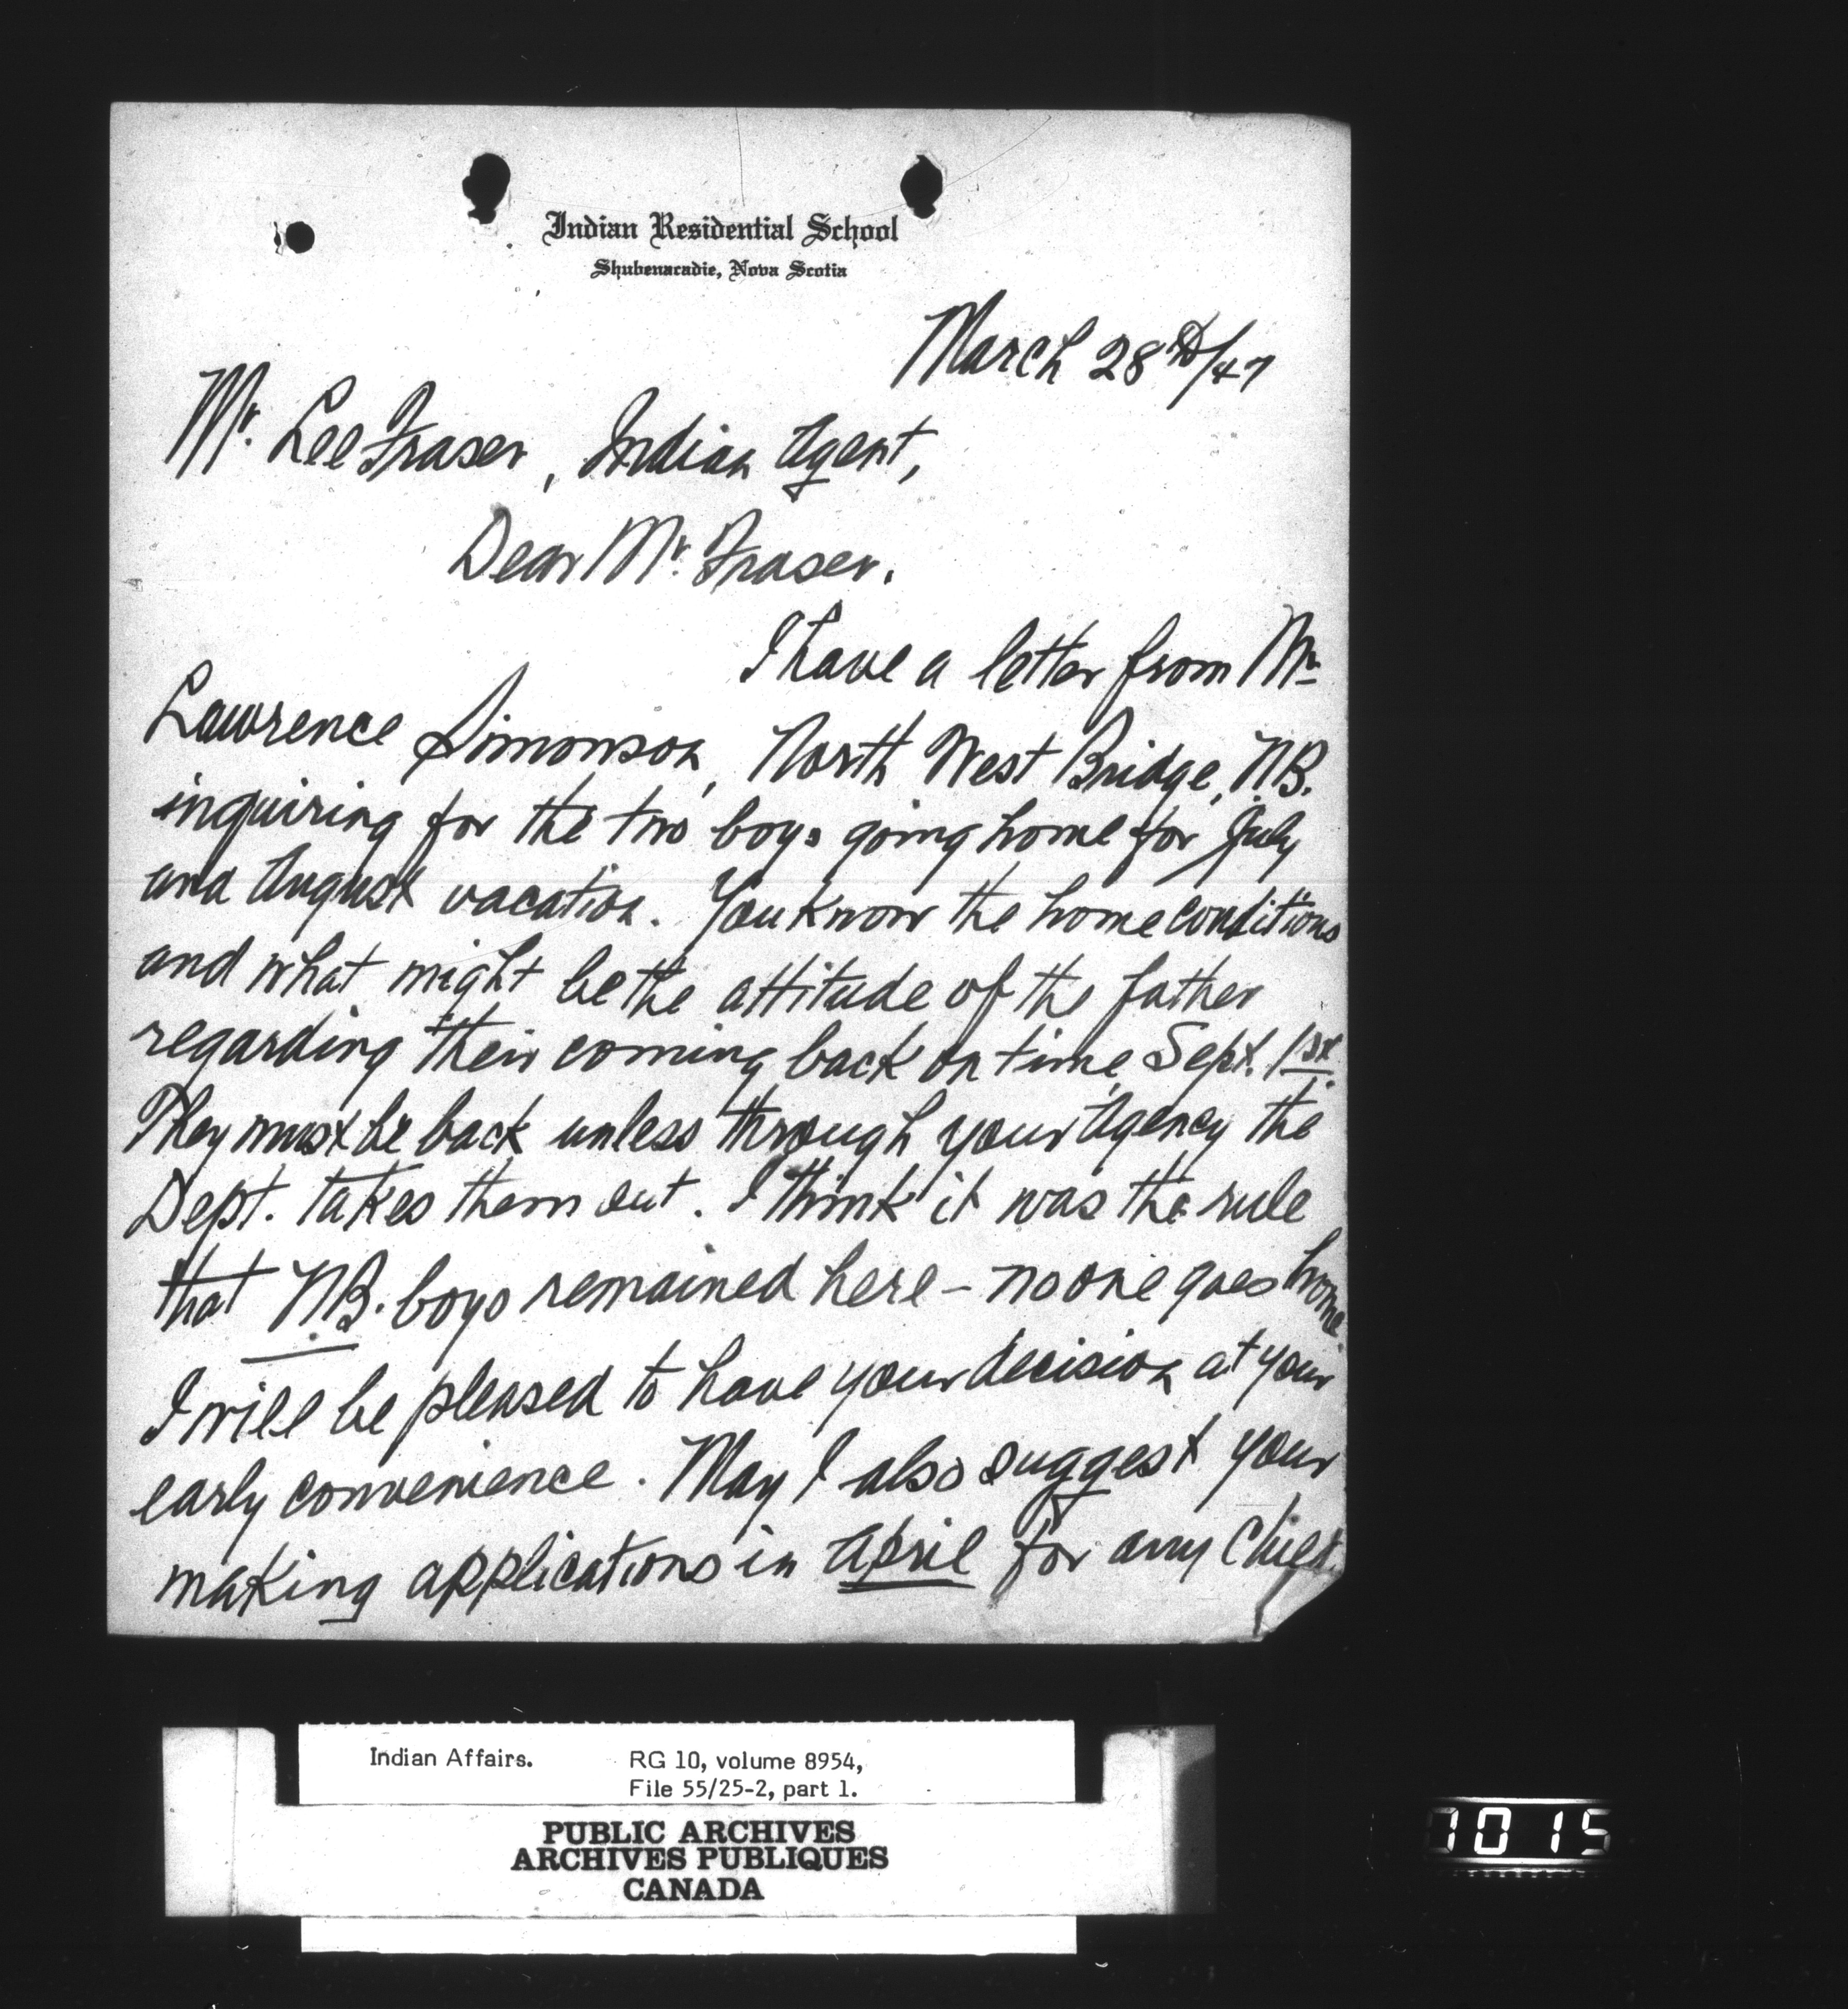 Indian Residential School
Shubenacadie, Nova Scotia
March 28th/47
Mr. Lee Fraser, Indian Agent,
Dear Mr. Fraser.
I have a letter from Mr
Lawrence Simonson, North West Bridge, N.B.
inquiring for the two boys going home for July
and August vacation. You know the home conditions
and what might be the attitude of the father
regarding their coming back on time Sept. 1st.
They must be back unless through your Agency the
Dept. takes them out. I think it was the rule
that N.B. boys remained here - no one goes home.
I will be pleased to have your decision at your
early convenience. May I also suggest your
making applications in April for any
Indian Affairs. RG 10, volume 8954,
File 55/25-2, part 1.
PUBLIC ARCHIVES
ARCHIVES PUBLIQUES
CANADA
7015